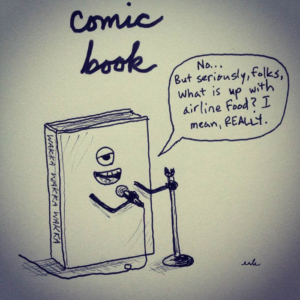 Comic
book
No...
But seriously, folks,
what is up with
airline food? I
mean, REALLY.
WAKKA WAKKA WAKKA